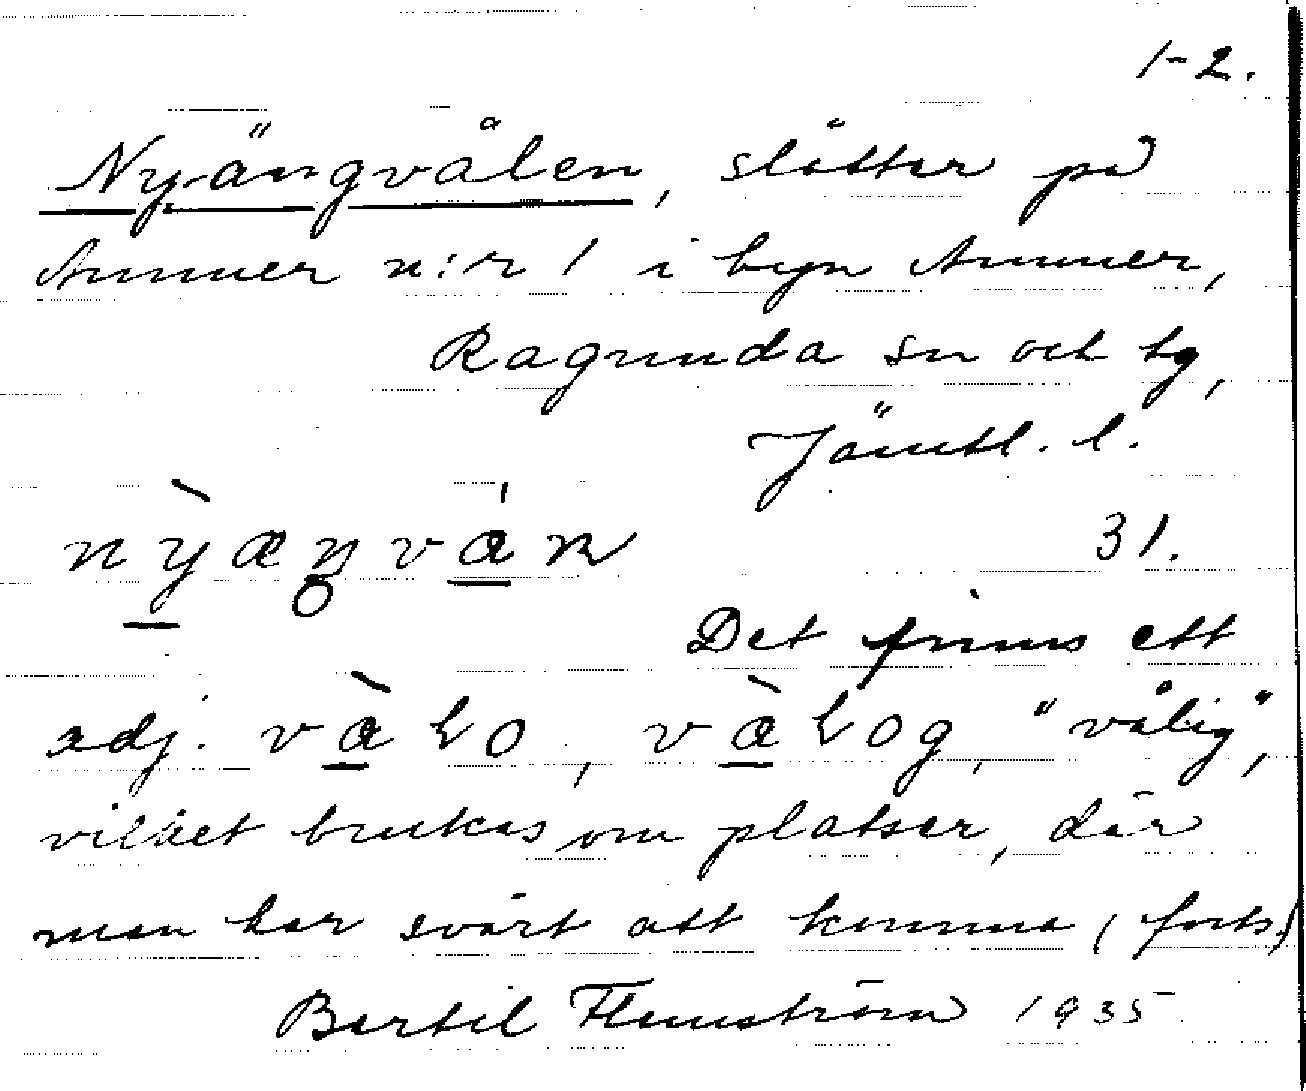 1-2.
Nyängvålen, slåtter på
Ammer n:r 1 i byn Ammer,
Ragunda sn och tg,
Jämtl. l.
31.
Det finns ett
adj. "vålig",
vilket brukas om platser, där
man har svårt att komma (forts.)
Bertil Flemström 1935